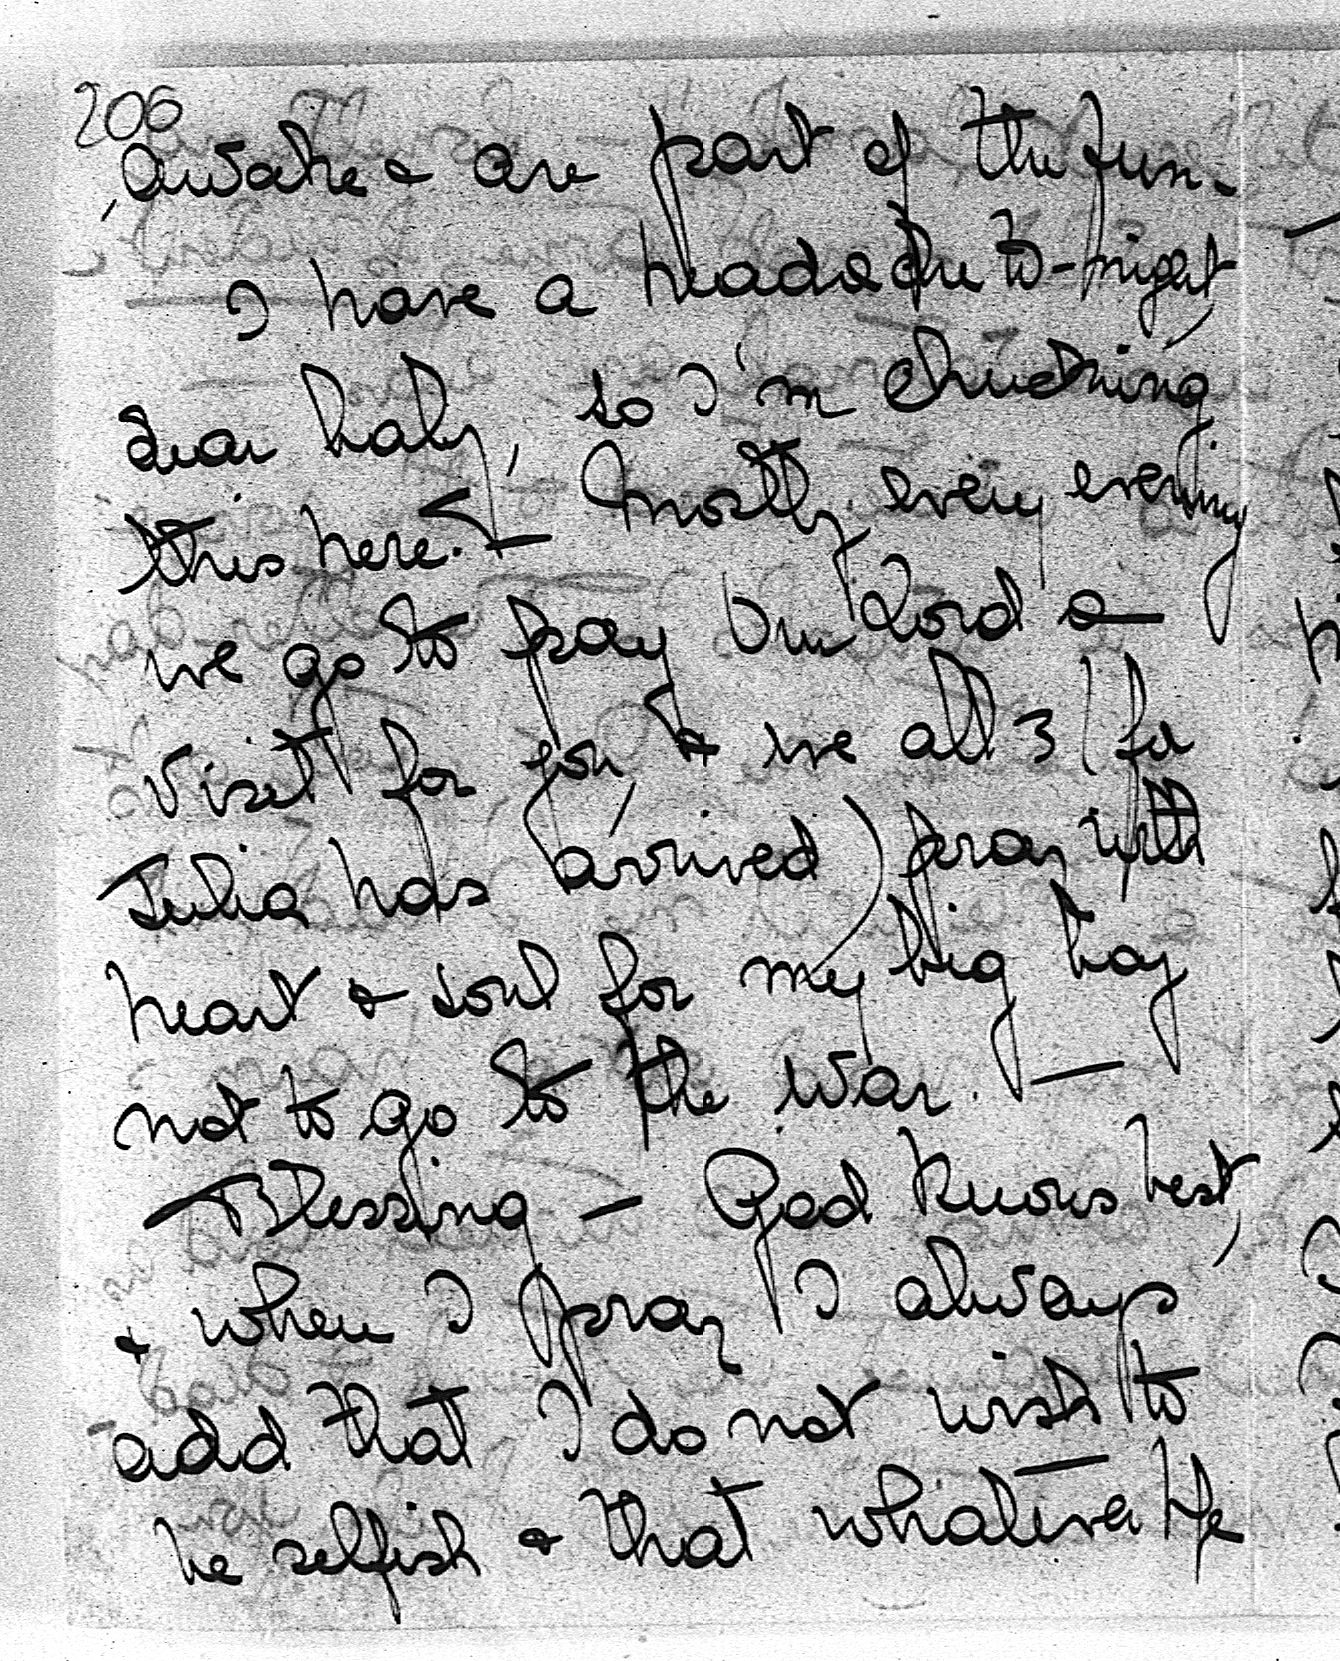 206
awake & are part of the fun.
I have a headache to-night,
dear baby, so I'm chucking
this here. — Mostly every evening
we go to pay Our Lord a
visit for you, & we all 3 (for
Julia has arrived) pray with
heart & soul for my big boy
not to go to the war. —
Blessing — God knows best,
& when I pray I always
add that I do not wish to
be selfish & that whatever He